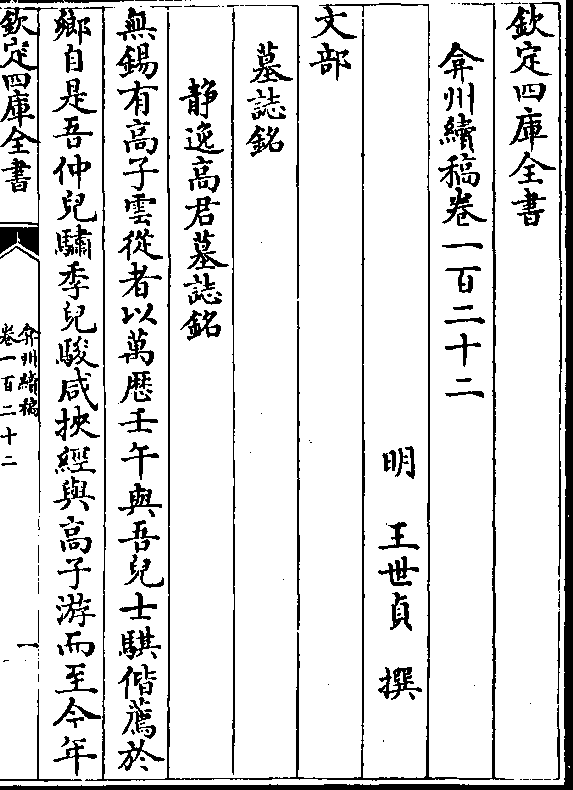 欽定四庫全書
弇州續稿卷一百二十二
明 王世貞 撰
文部
墓誌銘
静逸高君墓誌銘
無錫有高子雲從者以萬歷壬午與吾兒士騏偕薦於
鄉自是吾仲兒驌季兒駿咸挾經與高子游而至今年
欽定四庫全書
弇州續稿
卷一百二十二
一